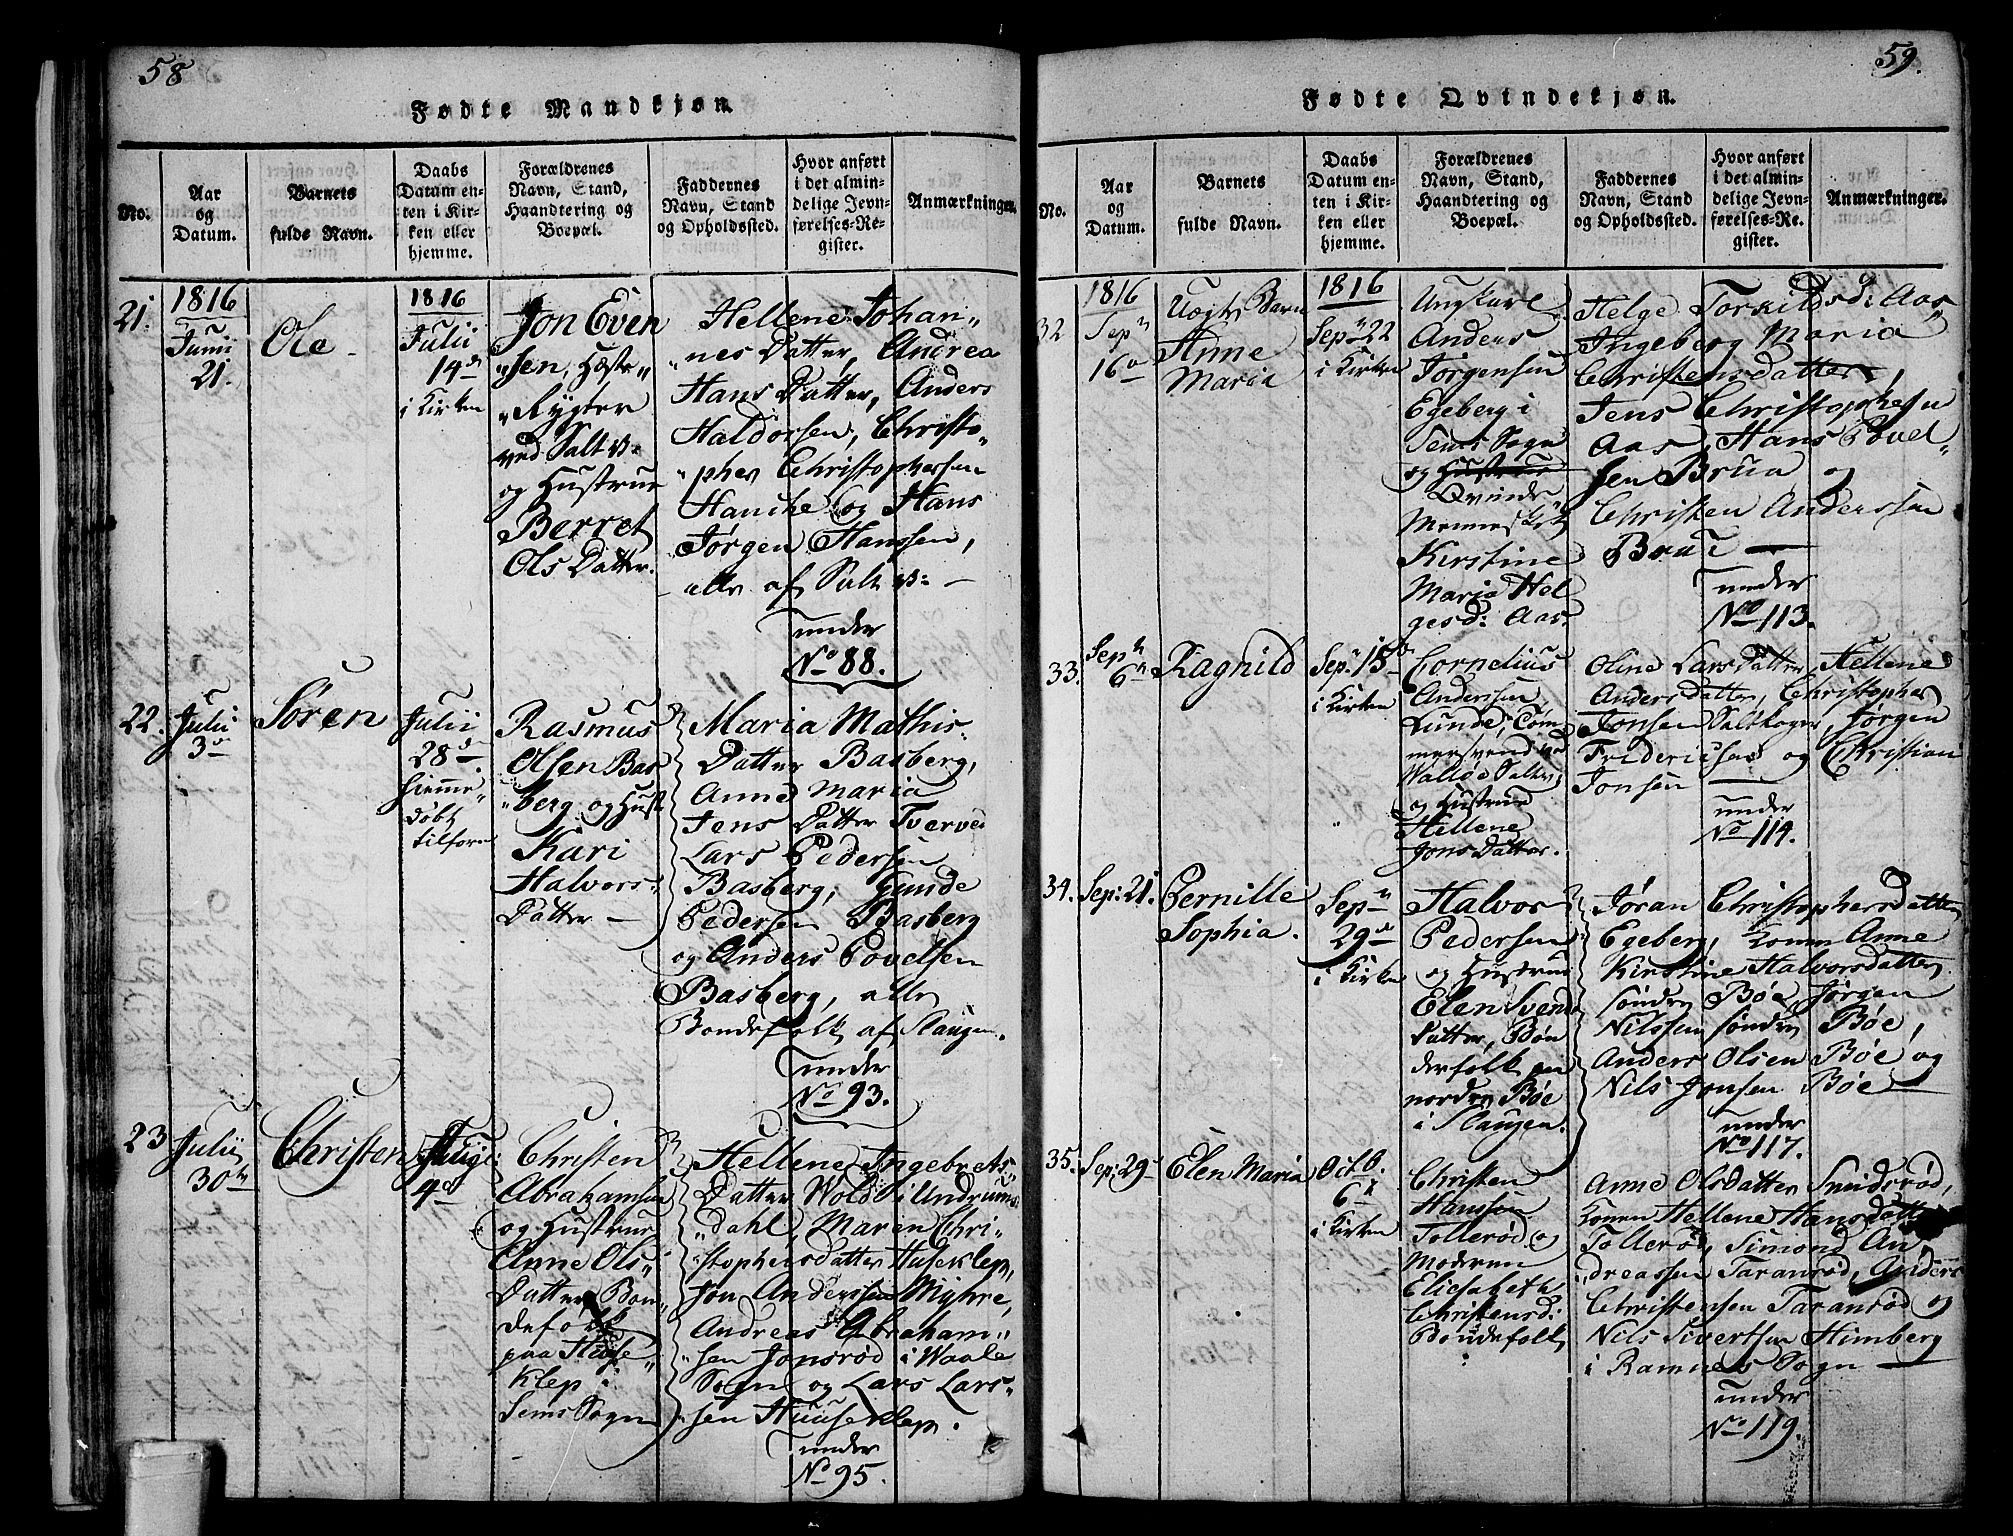 58
Fødte Mandkjøn.
No.
Aar
og
Datum.
Barnets
fulde Navn.
Daabs
Datum en-
ten i Kir-
ken eller
hjemme.
Forældrenes
Navn, Stand,
Haandtering og
Boepæl.
Faddernes
Navn, Stand
og Opholdssted.
Hvor anført
i det almin-
delige Jevn-
førelses-Re-
gister.
Anmærkninger.
21.
1816
Juni
21.
Ole
1816
Julii
14de
i Kirken
Jon Even
sen, Hæste
Rygter
ved Salt v:
og Hustrue
Berret
Ols Datter.
Hellene Johan-
nes Datter, Andrea
Hans Datter, Anders
Haldorsen, Christo-
pher Christophersen
Hanche og Hans
Jørgen Hanssen,
alle af Salt v: -
under
No 88.
22.
Julii
3de
Søren
Julii
28de
hiemme
døbt
tilforn
Rasmus
Olsen Bas
berg og Hust
Kari
Halvors
Datter -
Maria Mathis
Datter Basberg,
Anne Maria
Jens Datter Tverved
Lars Pedersen
Basberg, Gunde
Pedersen Basberg
og Anders Povelsen
Basberg, alle
Bondefolk af Slaugen.
under
No 93.
23
Julii
30te
Christen
4de
Christen
Abrahamsen
og Hustrue
Anne Ols
Datter Bon
defolk
paa Huse
klep i
Sems Sogn
Hellene Ingebrets
Datter Wold i Undrums
dahl, Maren Chri-
stophersdatter Huseklep,
Jon Anderssen Myhre,
Andreas Abraham-
sen Jonsrød i Waale
Sogn og Lars Lars-
sen Huuseklep.
under
No 95.
59.
Fødte Qvindekjøn.
No.
Aar
og
Datum.
Barnets
fulde Navn.
Daabs
Datum en-
ten i Kir-
ken eller
hjemme.
Forældrenes
Navn, Stand,
Haandtering og
Boepæl.
Faddernes
Navn, Stand
og Opholdssted.
Hvor anført
i det almin-
delige Jevn-
førelses-Re-
gister.
Anmærkninger.
32
1816
Sepn
16de
Uægte Barn
Anne
Maria
1816
Sepn 22
i Kirken
Ungkarl
Anders
Jørgensen
Egeberg i
Sems Sogn
og Hustrue
Qvinde
Mennesket
Kirstine
Maria Hel
gesd: Aas.
Helge Torkildsd: Aas
Ingeberg Maria
Christensdatter,
Jens Christophersen
Aas, Hans Povel
sen Brua og
Christen Anderssen
Brua -
under
No 113.
33.
Sepn
6te
Ragnild
Sepn 15de
i Kirken
Cornelius
Anderssen
Lunde, Tøm
mersvend ved
Walløe Saltv:
og Hustrue
Hellene
Jons Datter.
Oline Lars Datter, Hellene
Anders Datter, Christopher
Jonsen Saltkoger, Jørgen
Fridericksen og Christian
Jonsen -
under
No 114.
34.
Sep: 21.
Pernille
Sophia.
Sepn
29de
i Kirken
Halvor
Pedersen
og Hustrue
Elen Svends
datter, Bøn
derfolk paa
nordre Bøe
i Slaugen.
Jøran Christophersdatter
Egeberg, Konen Anne
Kirstine Halvorsdatter
søndre Bøe Jørgen
Nilssen søndre Bøe,
Anders Olsen Bøe, og
Nils Jonsen Bøe -
under
No 117.
35.
Sep: 29
Elen Maria
Octo.
6te
i Kirken
Christen
Hanssen
Tollerød og
Moderen
Elisabeth
Christensd:
Bondefolk
Anne Olsdatter Smidsrød,
Konen Hellene Hansdatter
Tollerød, Simond An-
dreassen Taranrød, Anders
Christensen Taranrød og
Nils Sivertsen Himberg
i Ramnes Sogn -
under
No 119.